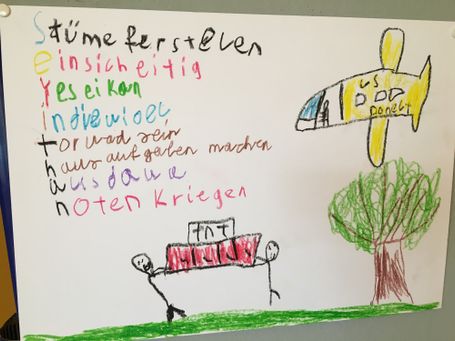 stümeferstelen
einsicheitig
yes eikon
indiewioel
torwad sein
hausaufgaben machen
ausdaue
noten kriegen
tnt